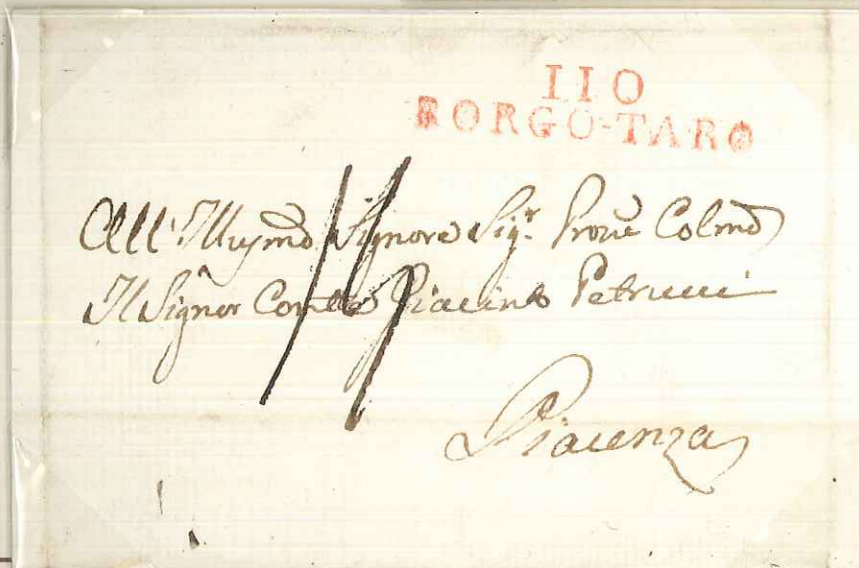 110
BORGO-TARO
All' Illuṃo Signore Sigr Prone Colmo
Il Signor Conte Giacinto Petrucci
Piacenza